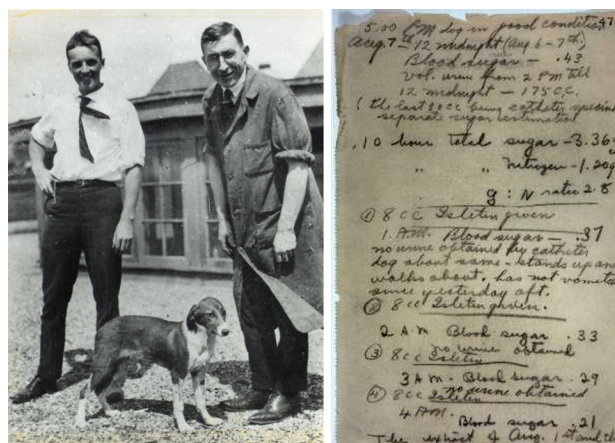 47
5.00 P.M dog in good condition
Aug. 7th 12 midnight (Aug 6-7th)
Blood sugar - .43
Vol. urine from 2 PM till
12 midnight - 175 C.C.
(the last 30 cc being catheter specimen
separate sugar estimation
10 hour total sugar - 3.36g
" " nitrogen - 1.20g
g : N ratio 2.8
① 8 cc Isletin given
1. A.M. Blood sugar - .37
no urine obtained by catheter
dog about same - stands up and
walks about. has not vomited
since yesterday aft.
② 8 cc Isletin given.
2 A.M Blood sugar .33
no urine obtained
③ 8 cc Isletin
3 A.M. Blood sugar .29
no urine obtained
④ 8 cc Isletin
4 A.M.
Blood sugar .21
The effect of Aug. 1st and